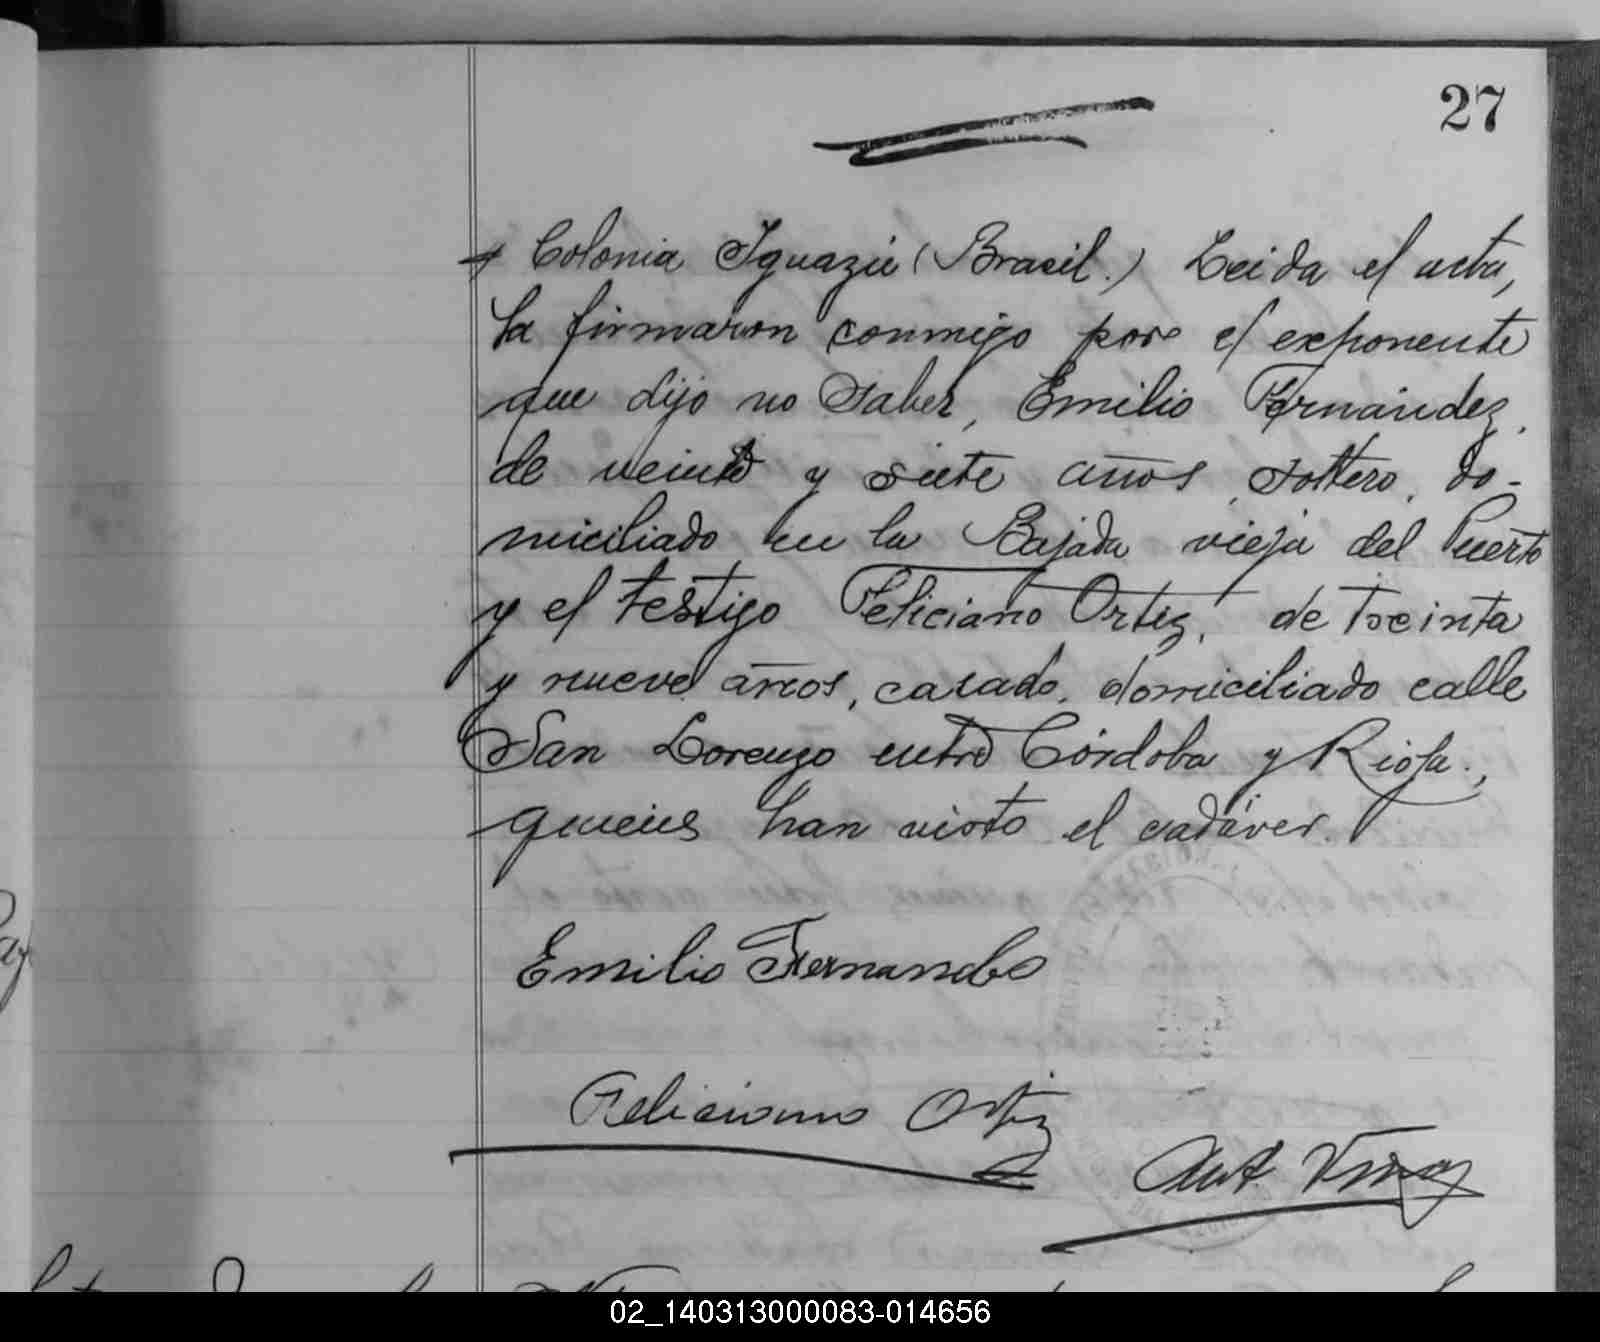 27
Colonia Iguazú (Brasil.) Leida el acta,
la firmaron conmigo por el exponente
que dijo no saber, Emilio Fernández,
de veinte y siete años, soltero, do-
miciliado en la Bajada vieja del Puerto
y el testigo Feliciano Ortiz, de treinta
y nueve años, casado, domiciliado calle
San Lorenzo entre Córdoba y Rioja.,
quienes han visto el cadáver.
Emilio Fernandes
Feliciano Ortiz
Ant.
02_140313000083-014656